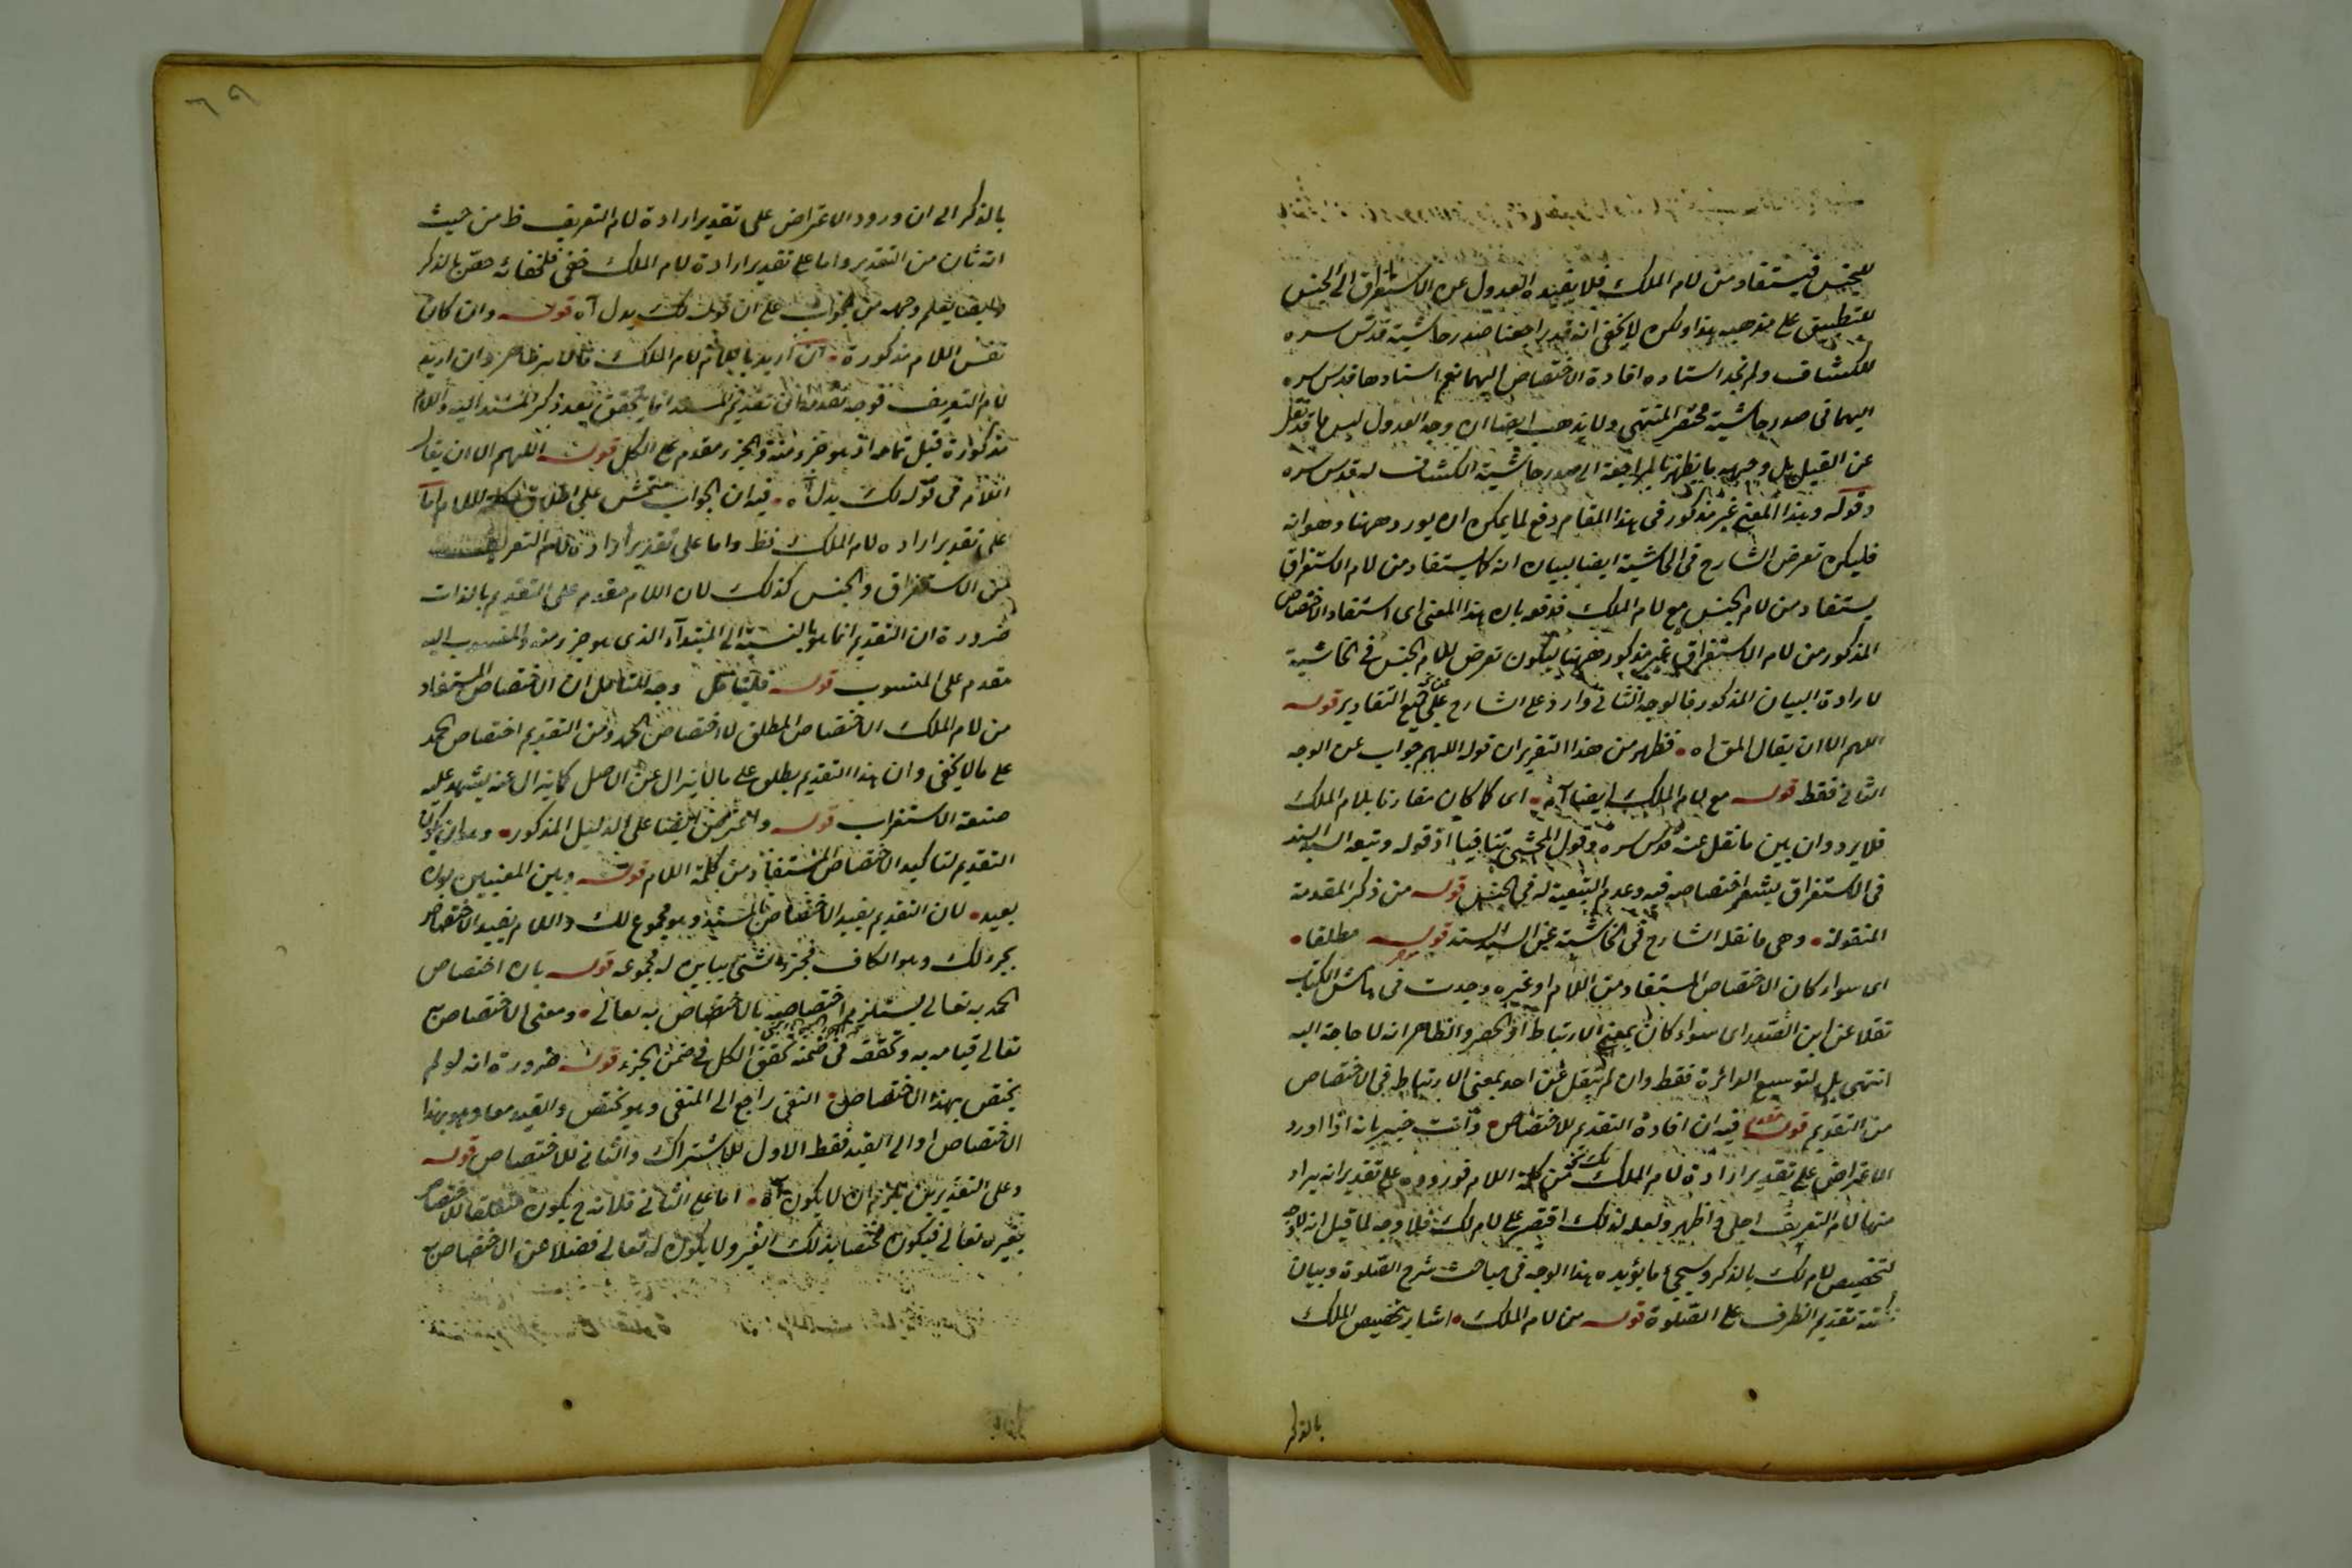 للجنس فيستفاد من لام الملك فلا يفيده العدول عن الاستغراق الى الجنس
للتطبيق على مذهبه هذا ولكن لا يخفى انه قد راجعنا صدر حاشية قدس سره
للكشاف ولم نجد اسناده افادة الاختصاص اليهما نعم اسنادها قدس سره
اليهما فى صدر حاشية مختصر المنتهى ولا يذهب ايضا ان وجه العدول ليس ما قد نقل
عن القيل بل وجهه ما يظهر بالمراجعة الى صدر حاشية الكشاف له قدس سره
وقوله وهذا المعنى غير مذكور فى هذا المقام دفع لما يمكن ان يورد ههنا وهو انه
فليكن تعرض الشارح فى الحاشية ايضا لبيان انه كما يستفاد من لام الاستغراق
يستفاد من لام الجنس مع لام الملك فدفعه بان هذا المعنى اى استفاد الاختصاص
المذكور من لام الاستغراق غير مذكور ههنا ليكون تعرض للام الجنس فى الحاشية
لارادة البيان المذكور فالوجه الثانى وارد على الشارح على جميع التقادير قوله
اللهم الا ان يقال المق اه فظهر من هذا التقرير ان قوله اللهم جواب عن الوجه
الثانى فقط قوله مع لام الملك ايضا آه اى كما كان مقارنا بلام الملك
فلا يرد وان بين ما نقل عنه قدس سره وقول المحشى تنافيا اذ قوله وتبعه السيد السند
فى الاستغراق يشعر اختصاصه فيه وعدم التبعية له فى الجنس قوله من ذكر المقدمة
المنقولة وهى ما نقله الشارح فى الحاشية عن السيد السند قوله مطلقا
اى سواء كان الاختصاص المستفاد من اللام او غيره وجدت فى هامش الكتاب
نقلا عن ابن الصدر اى سواء كان بمعنى الارتباط او الحصر والظاهر انه لا حاجة اليه
انتهى بل لتوسيع الدائرة فقط وان لم ينقل عن احد بمعنى الارتباط فى الاختصاص
من التقديم قوله فيه ان افادة التقديم للاختصاص وانت خبير بانه اذا اورد
الاعتراض على تقدير ارادة لام الملك من كلمة اللام فوروده على تقدير انه يراد
منها لام التعريف اجلى واظهر ولعله لذلك اقتصر على لام لك فلا وجه لما قيل انه لا وجه
لتخصيص لام لك بالذكر وسيجئ ما يؤيد هذا الوجه فى مباحث شرح الصلوة وبيان
نكتة تقديم الظرف على الصلوة قوله من لام الملك اشار بتخصيص الملك
بالذكر
٦٩
بالذكر الى ان ورود الاعتراض على تقدير ارادة لام التعريف ظ من حيث
انه ثان من التقدير واما على تقدير ارادة لام الملك خفى فلخفائه خص بالذكر
وايضا يعلم وجهه من الجواب على ان قوله لك يدل آه قوله وان كان
نفس اللام مذكورة ان اريد باللام لام الملك فالامر ظاهر وان اريد
لام التعريف فوجه تقدمه ان تقديم المسند انما يتحقق بعد ذكر المسند اليه واللام
مذكورة قبل تمامه اذ هو جزء منه والجزء مقدم على الكل قوله اللهم الا ان يقال
اللام فى قوله لك يدل آه فيه ان الجواب متمش على اطلاق اللام اما
على تقدير ارادة لام الملك فظ واما على تقدير ارادة لام التعريف
من الاستغراق والجنس كذلك لان اللام مقدم على التقديم بالذات
ضرورة ان التقديم انما هو بالنسبة الى المبتدأ الذى هو جزء منه والمنسوب اليه
مقدم على المنسوب قوله فليتامل وجه للتامل ان الاختصاص المستفاد
من لام الملك الاختصاص المطلق لا اختصاص الحمد ومن التقديم اختصاص الحمد
على ما لا يخفى وان هذا التقديم يطلق على ما لا يزال عن الاصل كما يزال عنه يشهد عليه
صنعة الاستغراب قوله واعترض ايضا على الدليل المذكور وهو ان يكون
التقديم لتاكيد الاختصاص المستفاد من كلمة اللام قوله وبين المعنيين بون
بعيد لان التقديم يفيد الاختصاص بالمسند وهو مجموع لك واللام يفيد الاختصاص
بجزء لك وهو الكاف فجزء الشئ يباين له مجموعه قوله بان اختصاص
الحمد به تعالى يستلزم اختصاصه بالاختصاص به تعالى ومعنى الاختصاص به
تعالى قيامه به وتحققه فى ضمنه تحقق الكل فى ضمن الجزء قوله ضرورة انه لو لم
يختص بهذا الاختصاص النفى راجع الى المنفى وهو يختص والقيد معا وهو بهذا
الاختصاص او الى القيد فقط الاول للاشتراك والثانى للاختصاص قوله
وعلى التقديرين يلزم ان لا يكون آه اما على الثانى فلانه ح يكون متعلقا للاختصاص
بغيره تعالى فيكون مختصا بذلك الغير ولا يكون له تعالى فضلا عن الاختصاص به